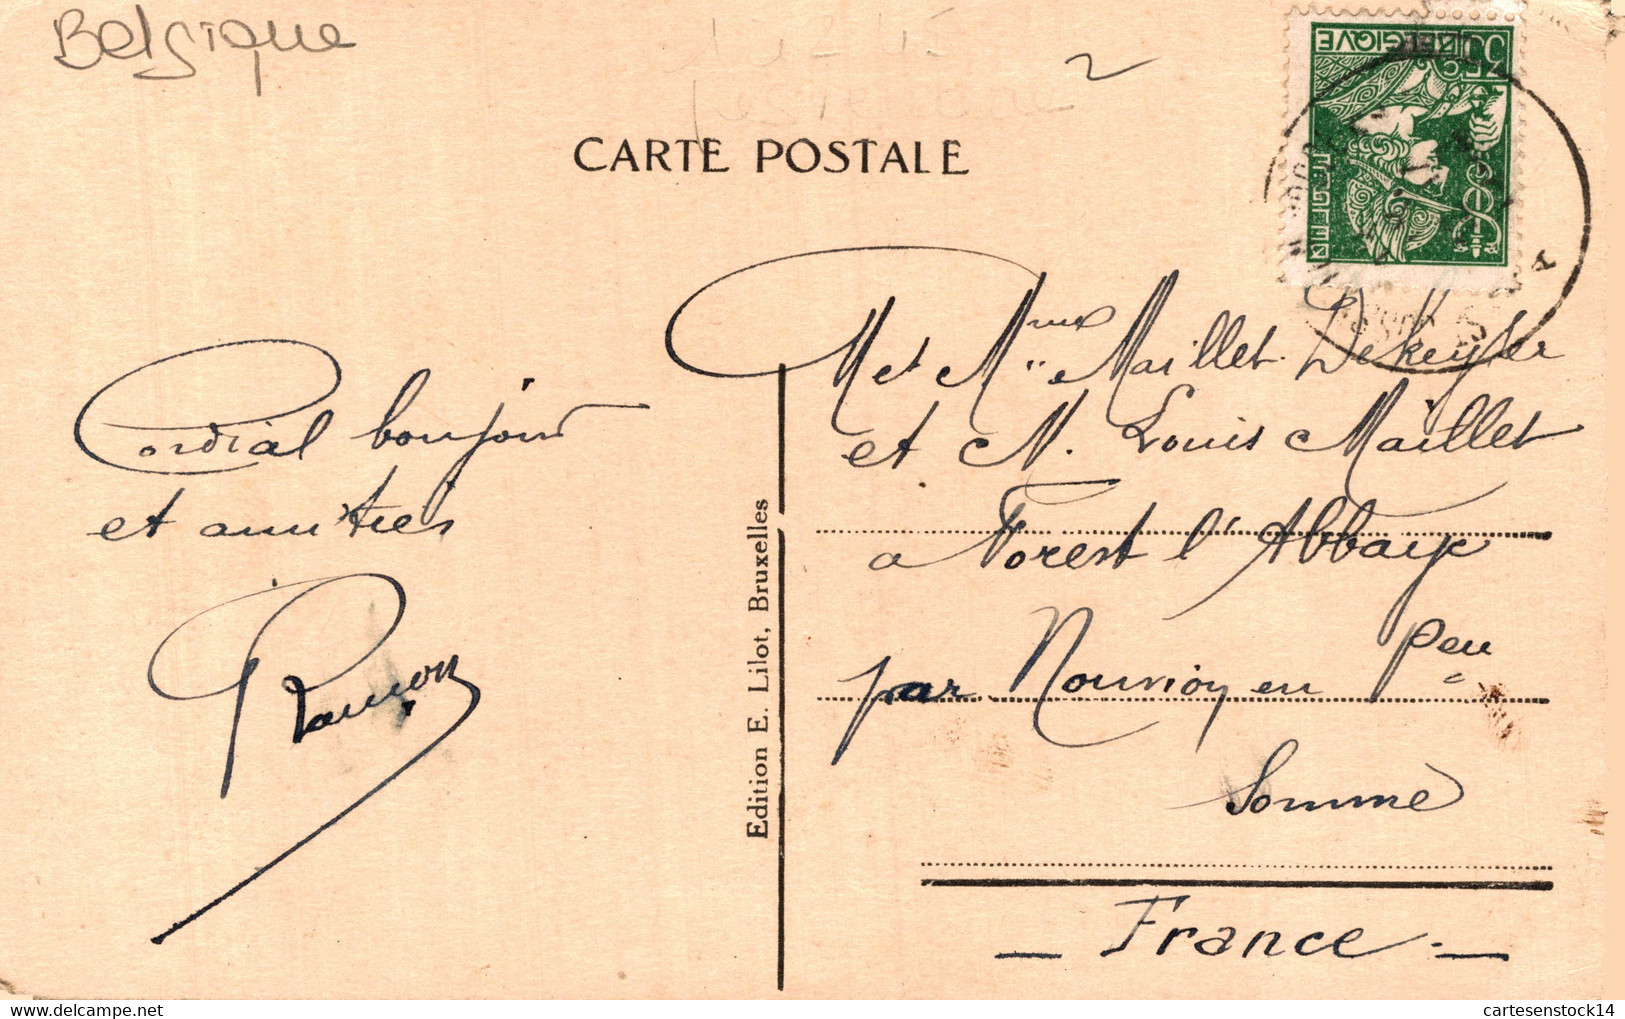 Belgique
2
CARTE POSTALE
35 BELGIQVE 35
BELGIE
Cordial bonjour
et amitiés
Ramon
Edition E. Lilot, Bruxelles
M et Mme Maillet-Dekeyser
et M. Louis Maillet
a Forest l'Abbaye
par Nouvion en Pieu
Somme
— France —
cartesenstock14